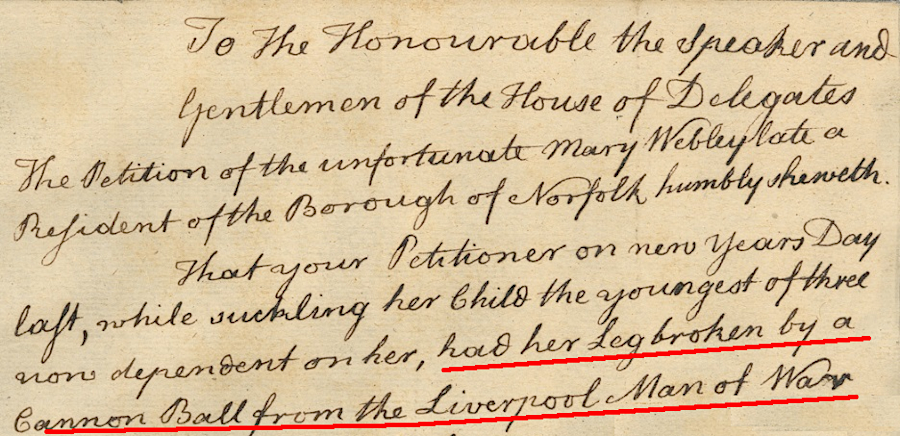 To The Honourable the Speaker and
Gentlemen of the House of Delegates
The Petition of the unfortunate Mary Webley late a
Resident of the Borough of Norfolk humbly sheweth.
That your Petitioner on new Years Day
last, while suckling her Child the youngest of three
now dependent on her, had her Leg broken by a
Cannon Ball from the Liverpool Man of War